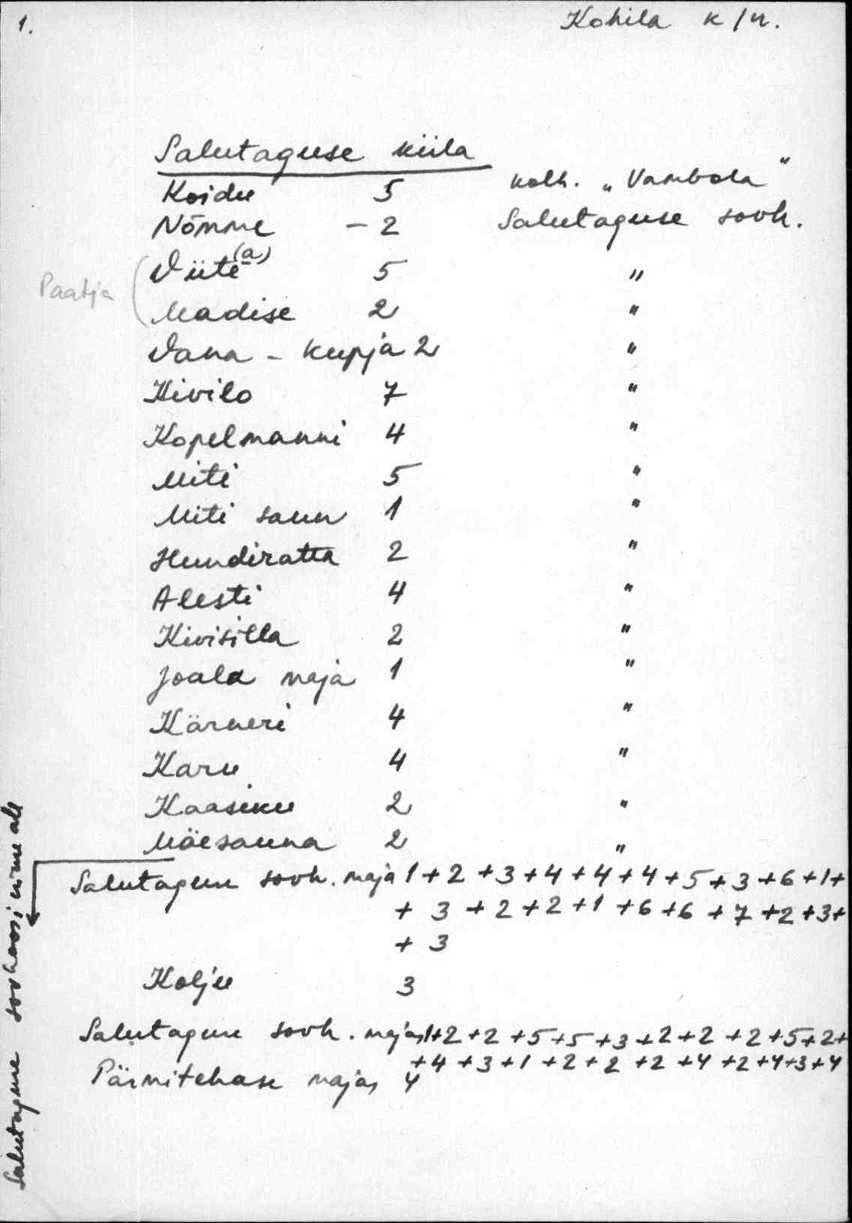 1.
Kohila k/n.
Salutaguse küla
Koidu 5 kolh. „Vambola"
Nõmme - 2 Salutaguse sovh.
Viite(a) 5 "
Paatja
Madise 2 "
Vana - kupja 2 "
Kivilo 7 "
Kopelmanni 4 "
Miti 5 "
Miti saun 1 "
Hundiratta 2 "
Alesti 4 "
Kivisilla 2 "
Joala maja 1 "
Kärneri 4 "
Karu 4 "
Kaasiku 2 "
Mäesauna 2 "
Salutaguse sovh. maja 1+2+3+4+4+4+5+3+6+1+
+ 3 + 2 + 2 + 1 + 6 + 6 + 7 + 2 + 3 +
+ 3
Kolju 3
Salutaguse sovh. majas 1+2+2+5+5+3+2+2+2+5+2+
+4+3+1+2+2+2+4+2+4+3+4
Pärmitehase majas 4
Salutaguse sovhoosi nime all